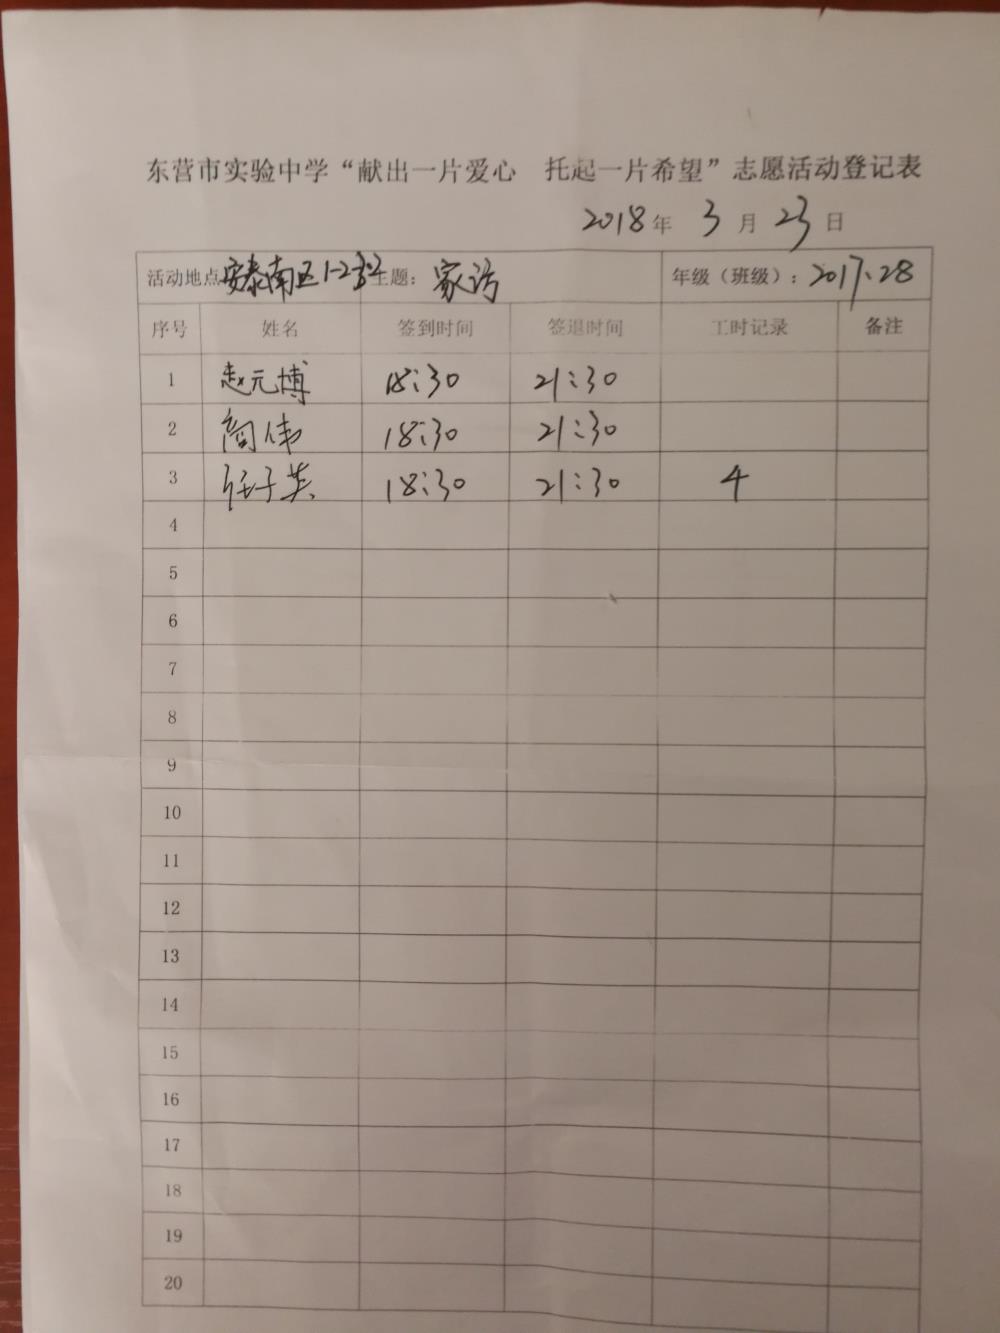 东营市实验中学“献出一片爱心 托起一片希望”志愿活动登记表
2018年 3月 23日
活动地点 安泰南区 主题：家访 年级（班级）：2017.28
序号 姓名 签到时间 签退时间 工时记录 备注
1 赵元博 18:30 21:30
2 商伟 18:30 21:30
3 任子英 18:30 21:30 4
4
5
6
7
8
9
10
11
12
13
14
15
16
17
18
19
20